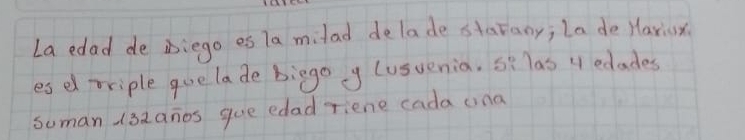 La edad de Diego es la mitad de la de starany; La de Mariux.
es el triple que la de Diego y Lusvenia. si las 4 edades
suman 132 años que edad tiene cada una